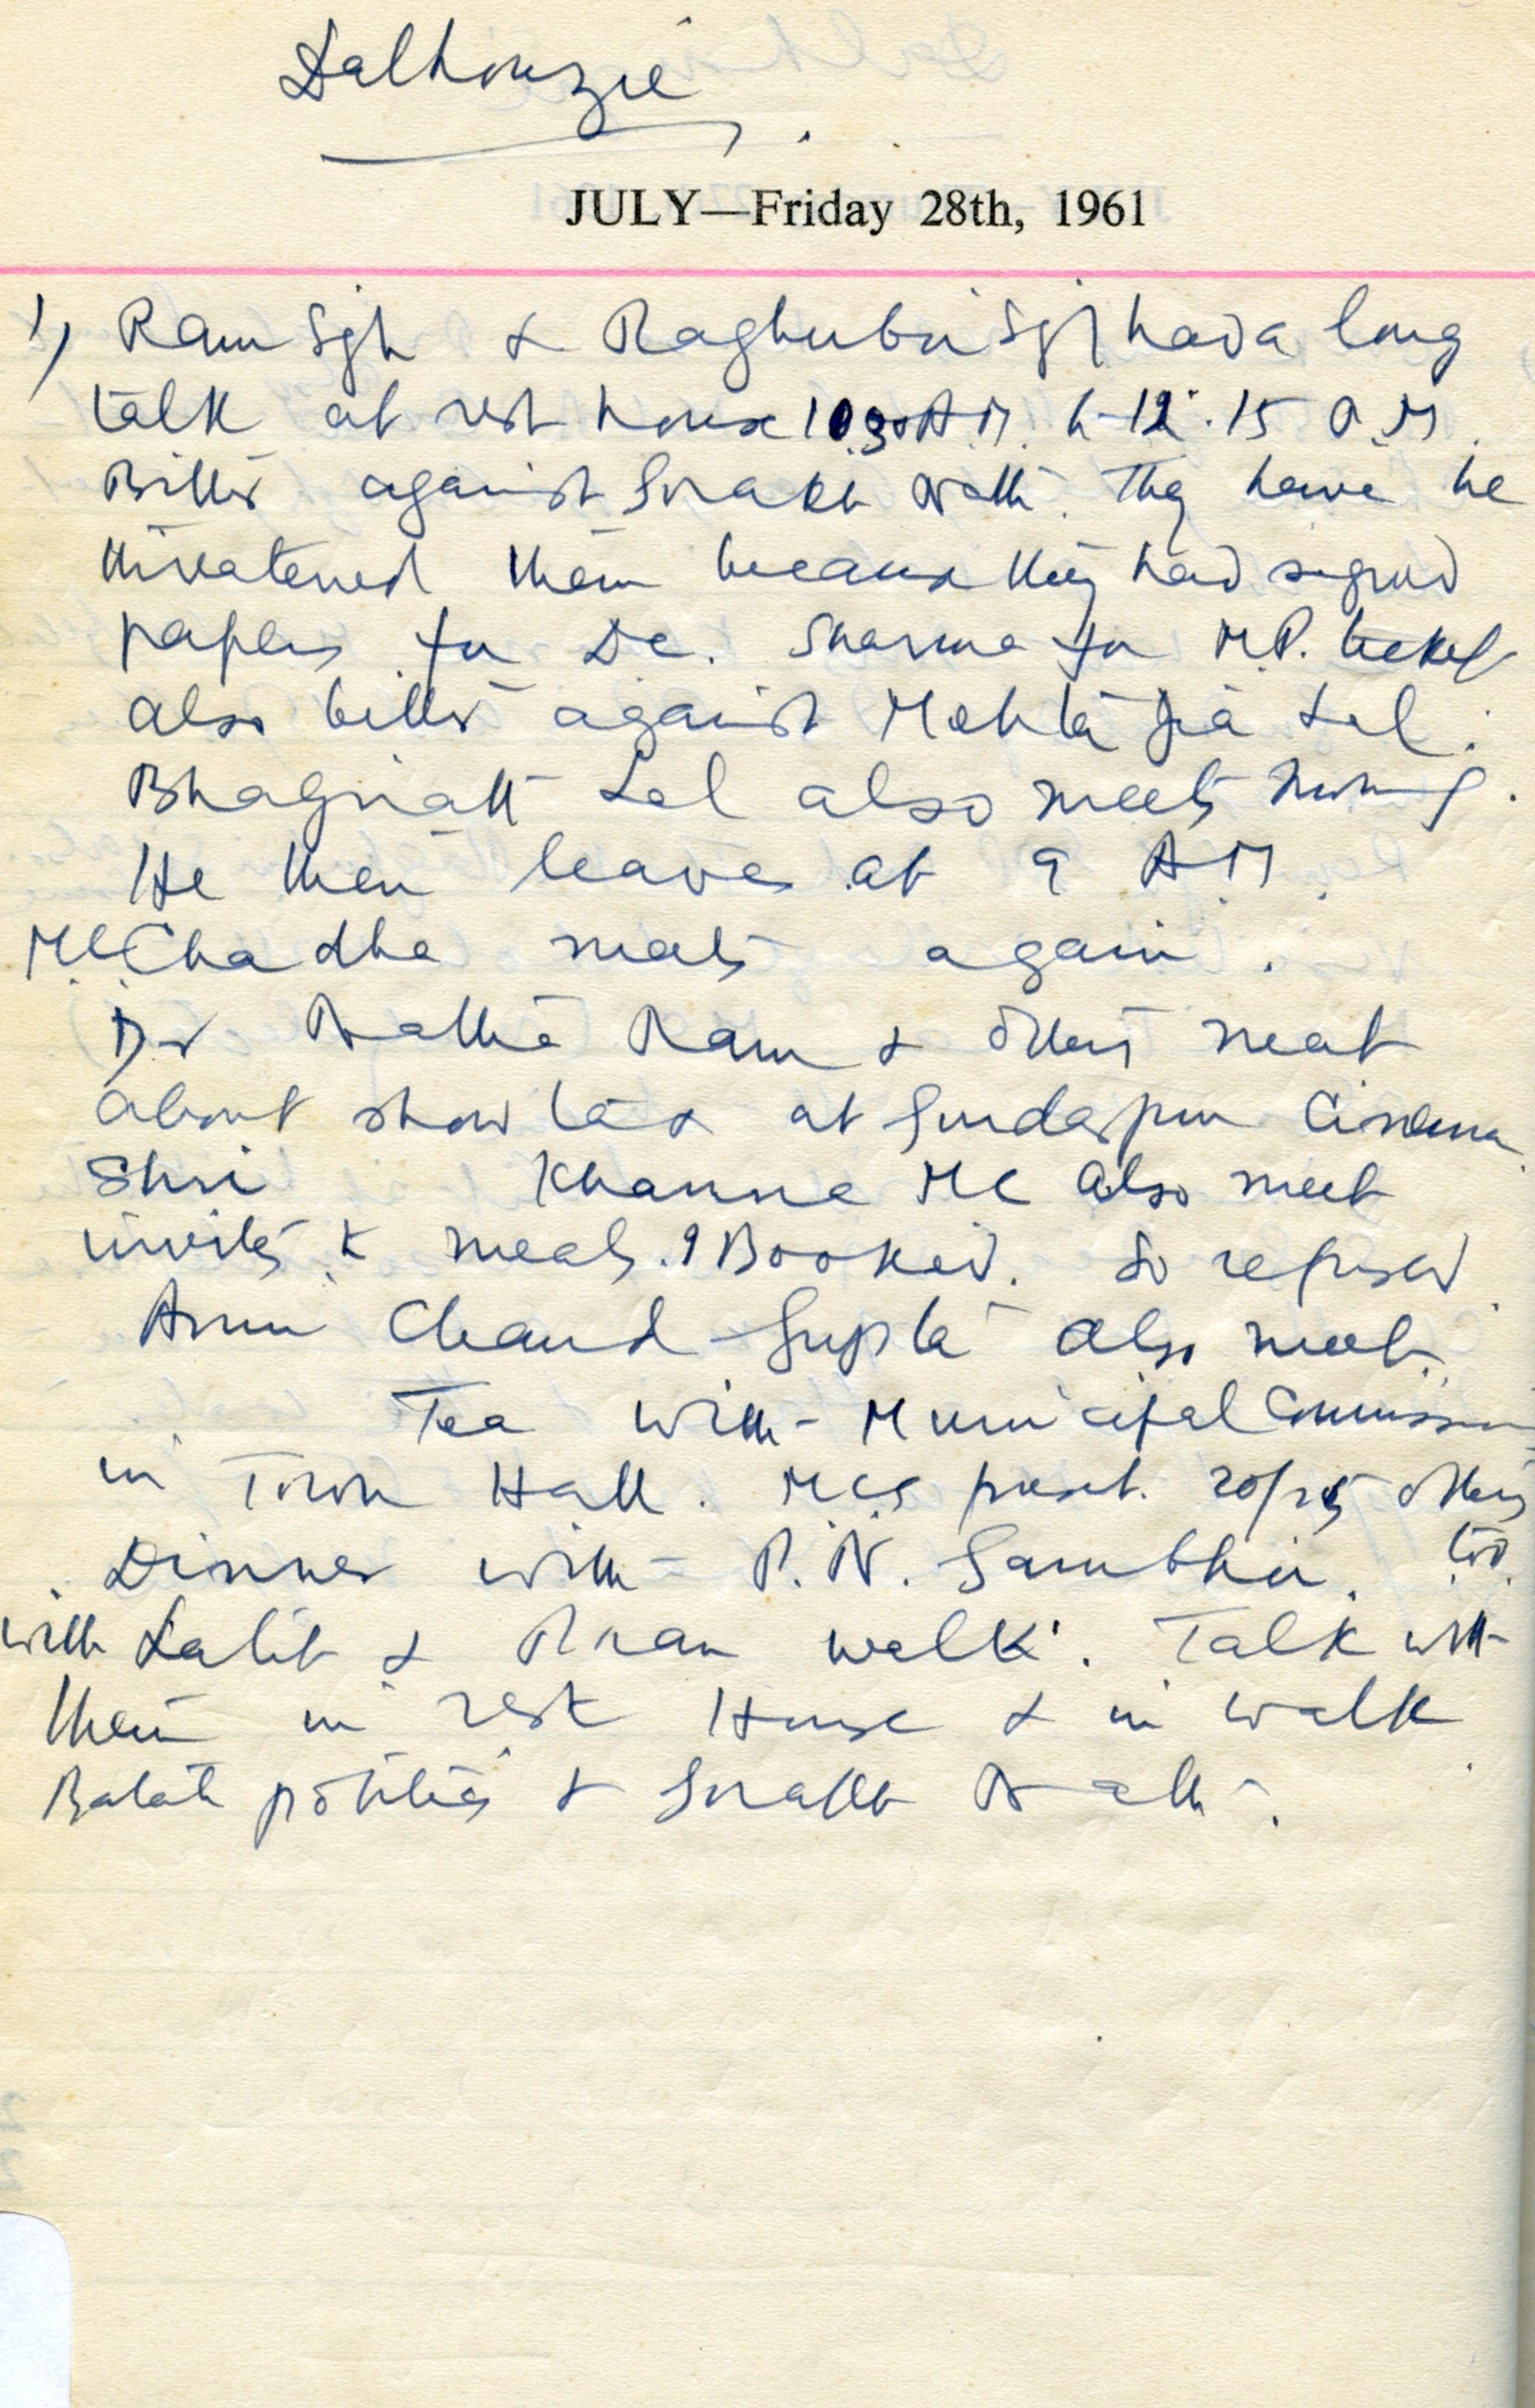 Dalhouzie
JULY—Friday 28th, 1961
1) Ram Sgh & Raghubir Sgh had a long
talk at rest house 10.30 A.M. to 12.15 P.M.
Bitter against Nath. They have he
threatened them because they had signed
papers for D.C. Sharma for M.P. ticket
also bitter against Mehta Lal.
Lal also meets
He then leaves at 9 A.M.
M.C. Chadha meets again.
Dr Ram & others meet
about show tax at Gurdaspur Cinema.
Shri Khanna MC also meet
invites to meals. I Booked. So refused.
Chand Gupta also meet.
Tea with Municipal
in Town Hall. MCs present. 20/25 others
Dinner with P.N. too.
with Lalit & walk. Talk with
them in rest House & in walk
politics & Nath.